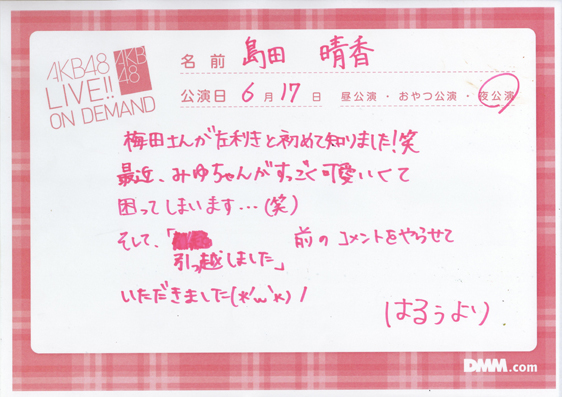 AKB48
LIVE!!
ON DEMAND
AKB
48
名前 島田 晴香
公演日 6月17日 昼公演・おやつ公演・夜公演
梅田さんが左利きと初めて知りました!笑
最近、みゆちゃんがすっごく可愛いくて
困ってしまいます…(笑)
そして、「 前のコメントをやらせて
引っ越しました」
いただきました(*'ω'*)!
はるぅより
DMM.com